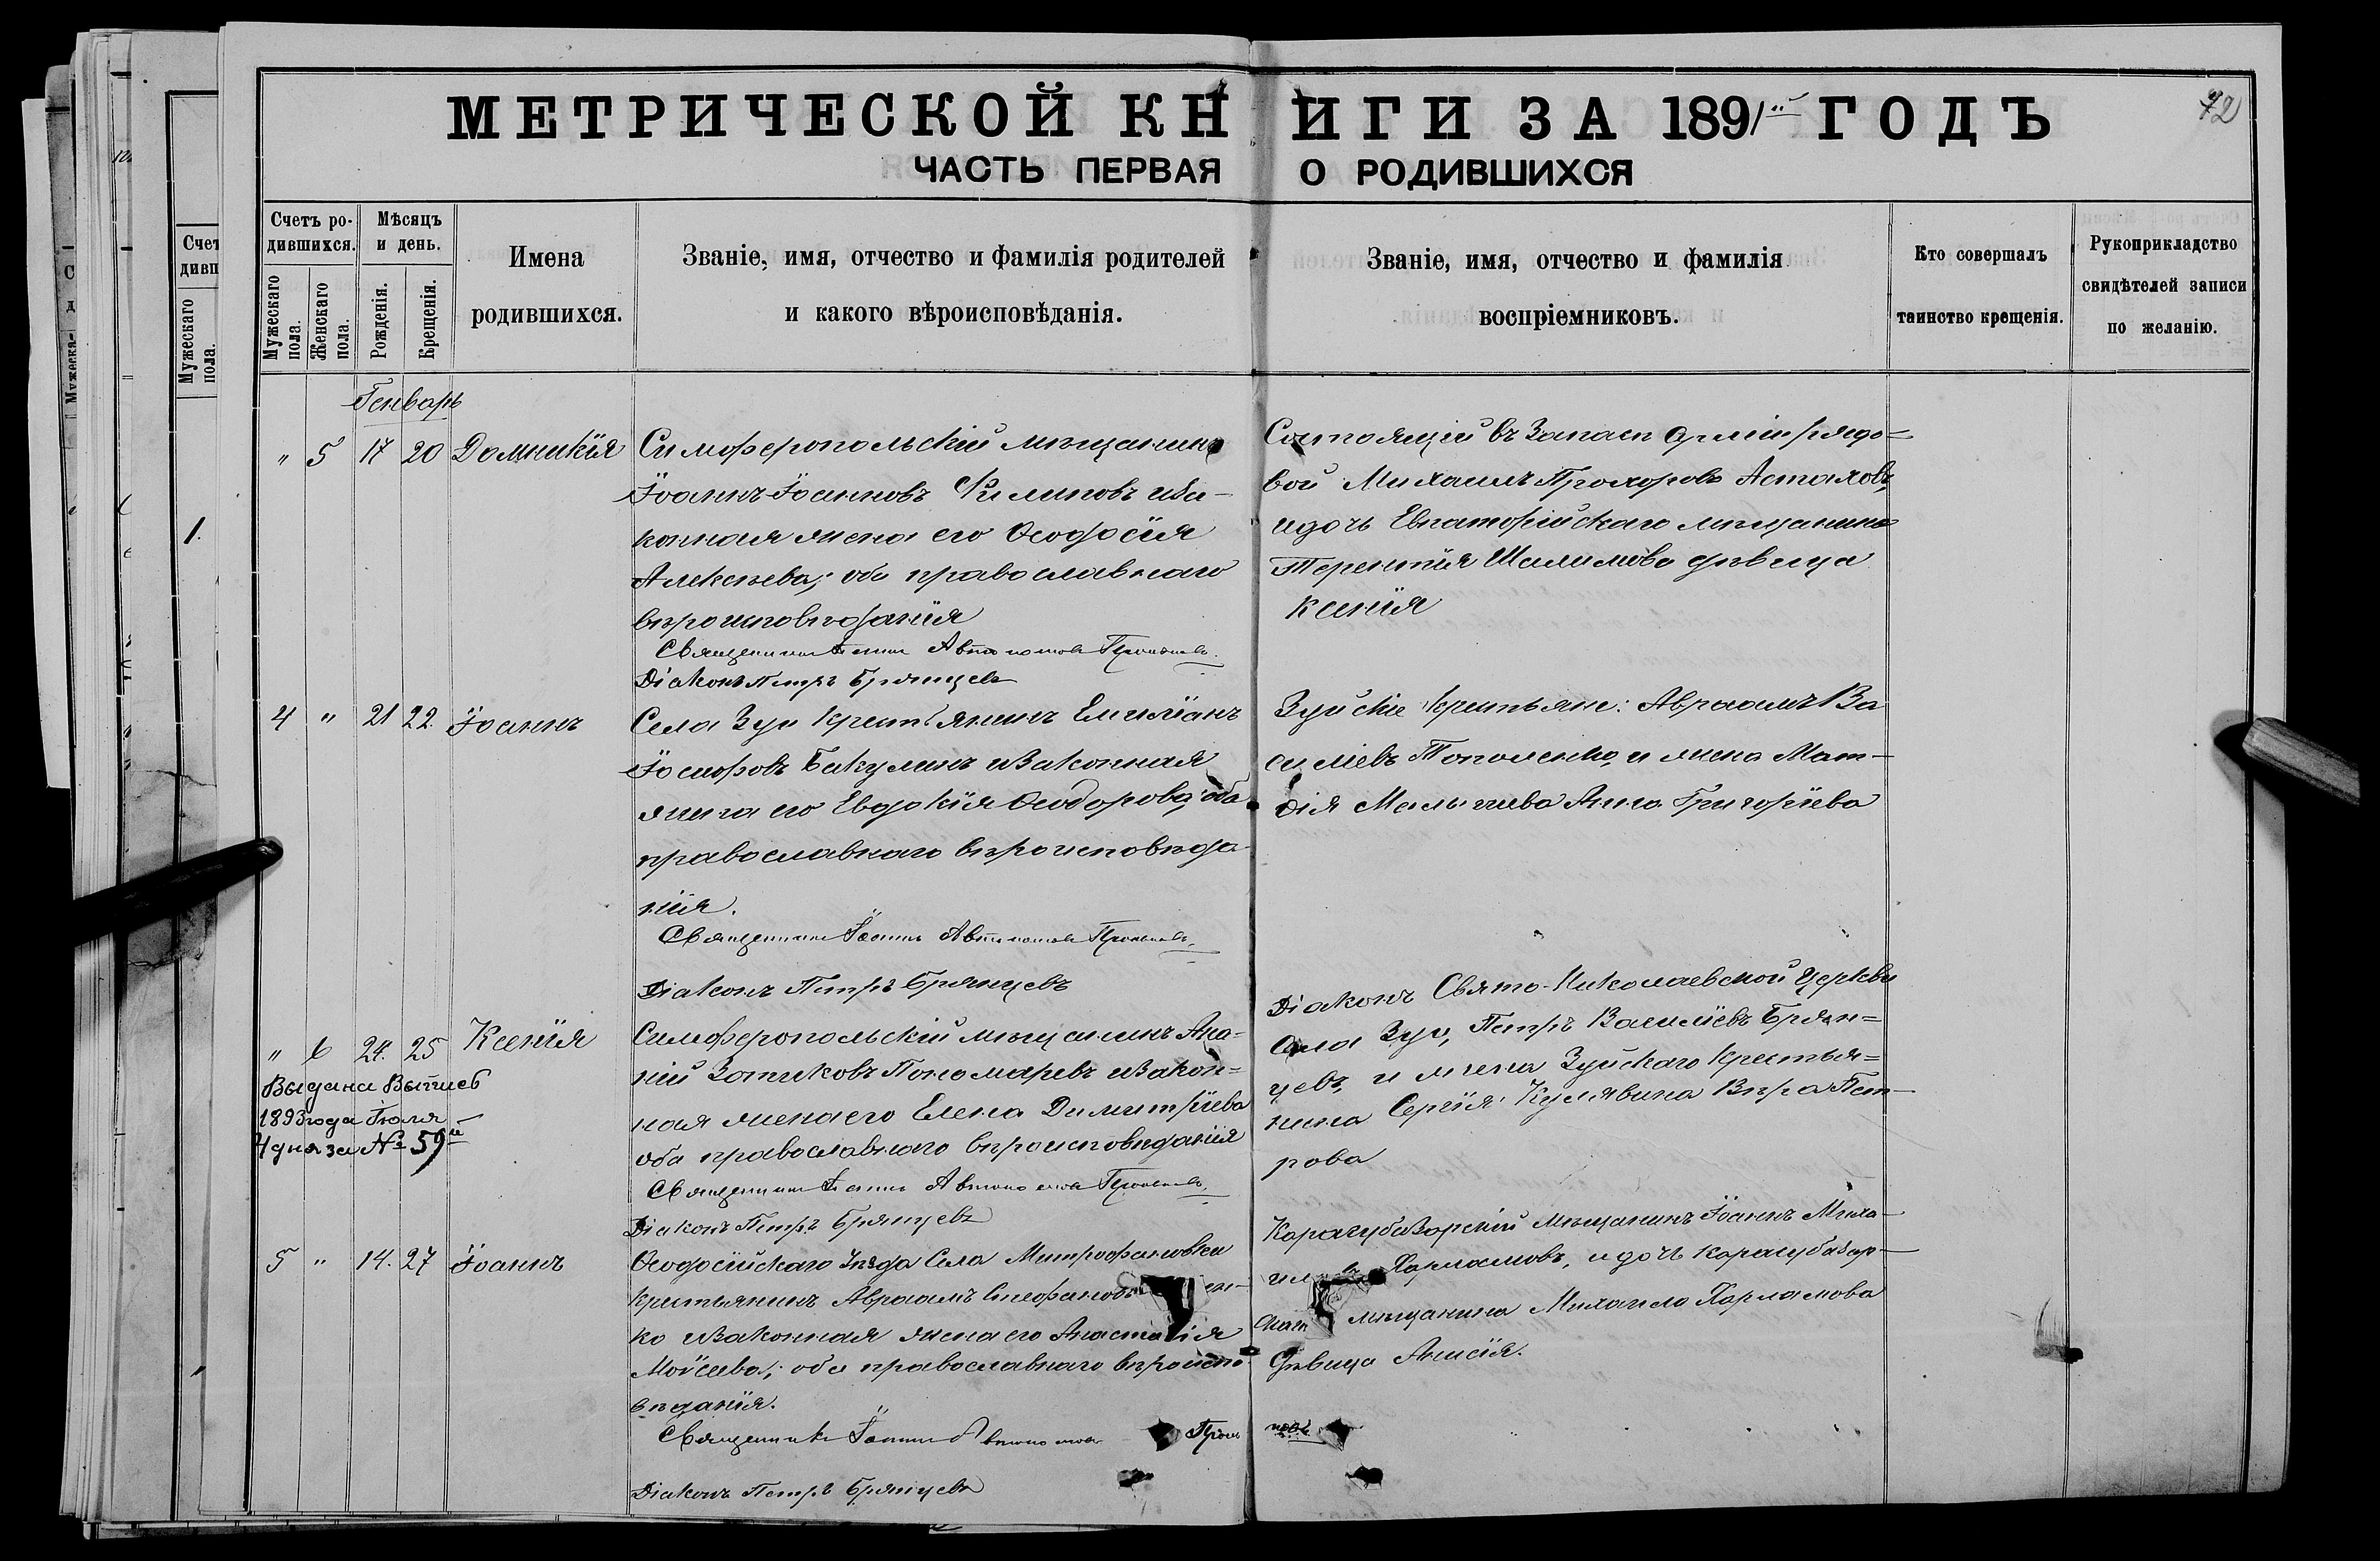 МЕТРИЧЕСКОЙ КНИГИ ЗА 1891 ГОДЪ
72
ЧАСТЬ ПЕРВАЯ О РОДИВШИХСЯ
Счетъ ро-
дившихся.
Мужескаго пола.
Женскаго пола.
Мѣсяцъ
и день.
Рожденія.
Крещенія.
Имена
родившихся.
Званіе, имя, отчество и фамилія родителей
и какого вѣроисповѣданія.
Званіе, имя, отчество и фамилія
воспріемниковъ.
Кто совершалъ
таинство крещенія.
Рукоприкладство
свидѣтелей записи
по желанію.
Генварь
" 5 17 20 Домникія
Симферопольскій мѣщанинъ
Іоаннъ Іоанновъ Филиповъ и за-
конная жена его Ѳеодосія
Алексѣева; оба православнаго
вѣроисповѣданія
Священникъ Іоаннъ Автономовъ
Діаконъ Петръ Брянцевъ
Состоящій въ запасѣ арміи рядо=
вой Михаилъ Прохоровъ Астаховъ,
и дочь Евпаторійскаго мѣщанина
Терентія Шалимова дѣвица
Ксенія
4 " 21 22. Іоаннъ
Села Зуи крестьянинъ Емиліанъ
Іосифовъ Бакулинъ и законная
жена его Евдокія Ѳеодорова; оба
православнаго вѣроисповѣда-
нія.
Священникъ Іоаннъ Автономовъ
Діаконъ Петръ Брянцевъ
Зуйскіе крестьяне: Авраамъ Ва
силіевъ Тополенко, и жена Мат-
ѳія Анна Григоріева
" 6 24. 25 Ксенія
Выдана Выпись
1893 года Іюля
4 дня за № 59
Симферопольскій мѣщанинъ Ана=
ній Зотиковъ Пономаревъ и закон=
ная жена его Елена Димитріева
оба православнаго вѣроисповѣданія
Священникъ Іоаннъ Автономовъ
Діаконъ Петръ Брянцевъ
Діаконъ Свято-Николаевской церкви
села Зуи, Петръ Василіевъ Брян=
цевъ, и жена Зуйскаго крестья=
нина Сергія Кулявина Вѣра Пет-
рова
5 " 14. 27 Іоаннъ
Ѳеодосійскаго уѣзда села Митрофановки
крестьянинъ Авраамъ Стефановъ ен-
ко и законная жена его Анастасія
Моѵсеева; оба православнаго вѣроиспо-
вѣданія.
Священникъ Іоаннъ Автономовъ
Діаконъ Петръ Брянцевъ
Карасубазарскій мѣщанинъ Іоаннъ Миха-
Харламовъ, и дочь карасубазар-
мѣщанина Михаила Харламова
дѣвица Анисія.